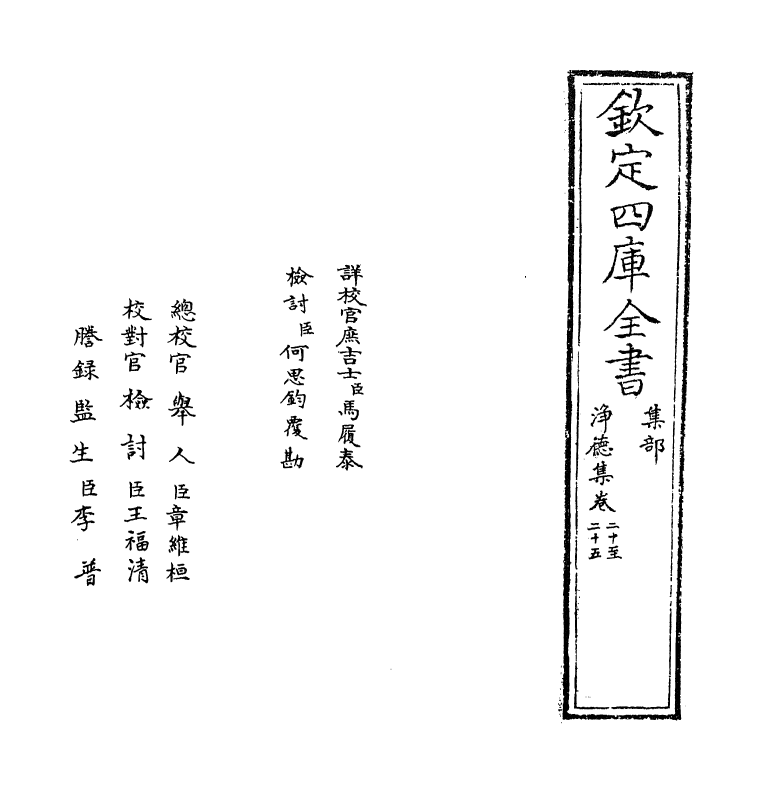 欽定四庫全書
集部
淨德集卷二十至二十五
詳校官庶吉士臣馬履泰
檢討臣何思鈞覆勘
總校官舉人臣章維桓
校對官檢討臣王福清
謄錄監生臣李普